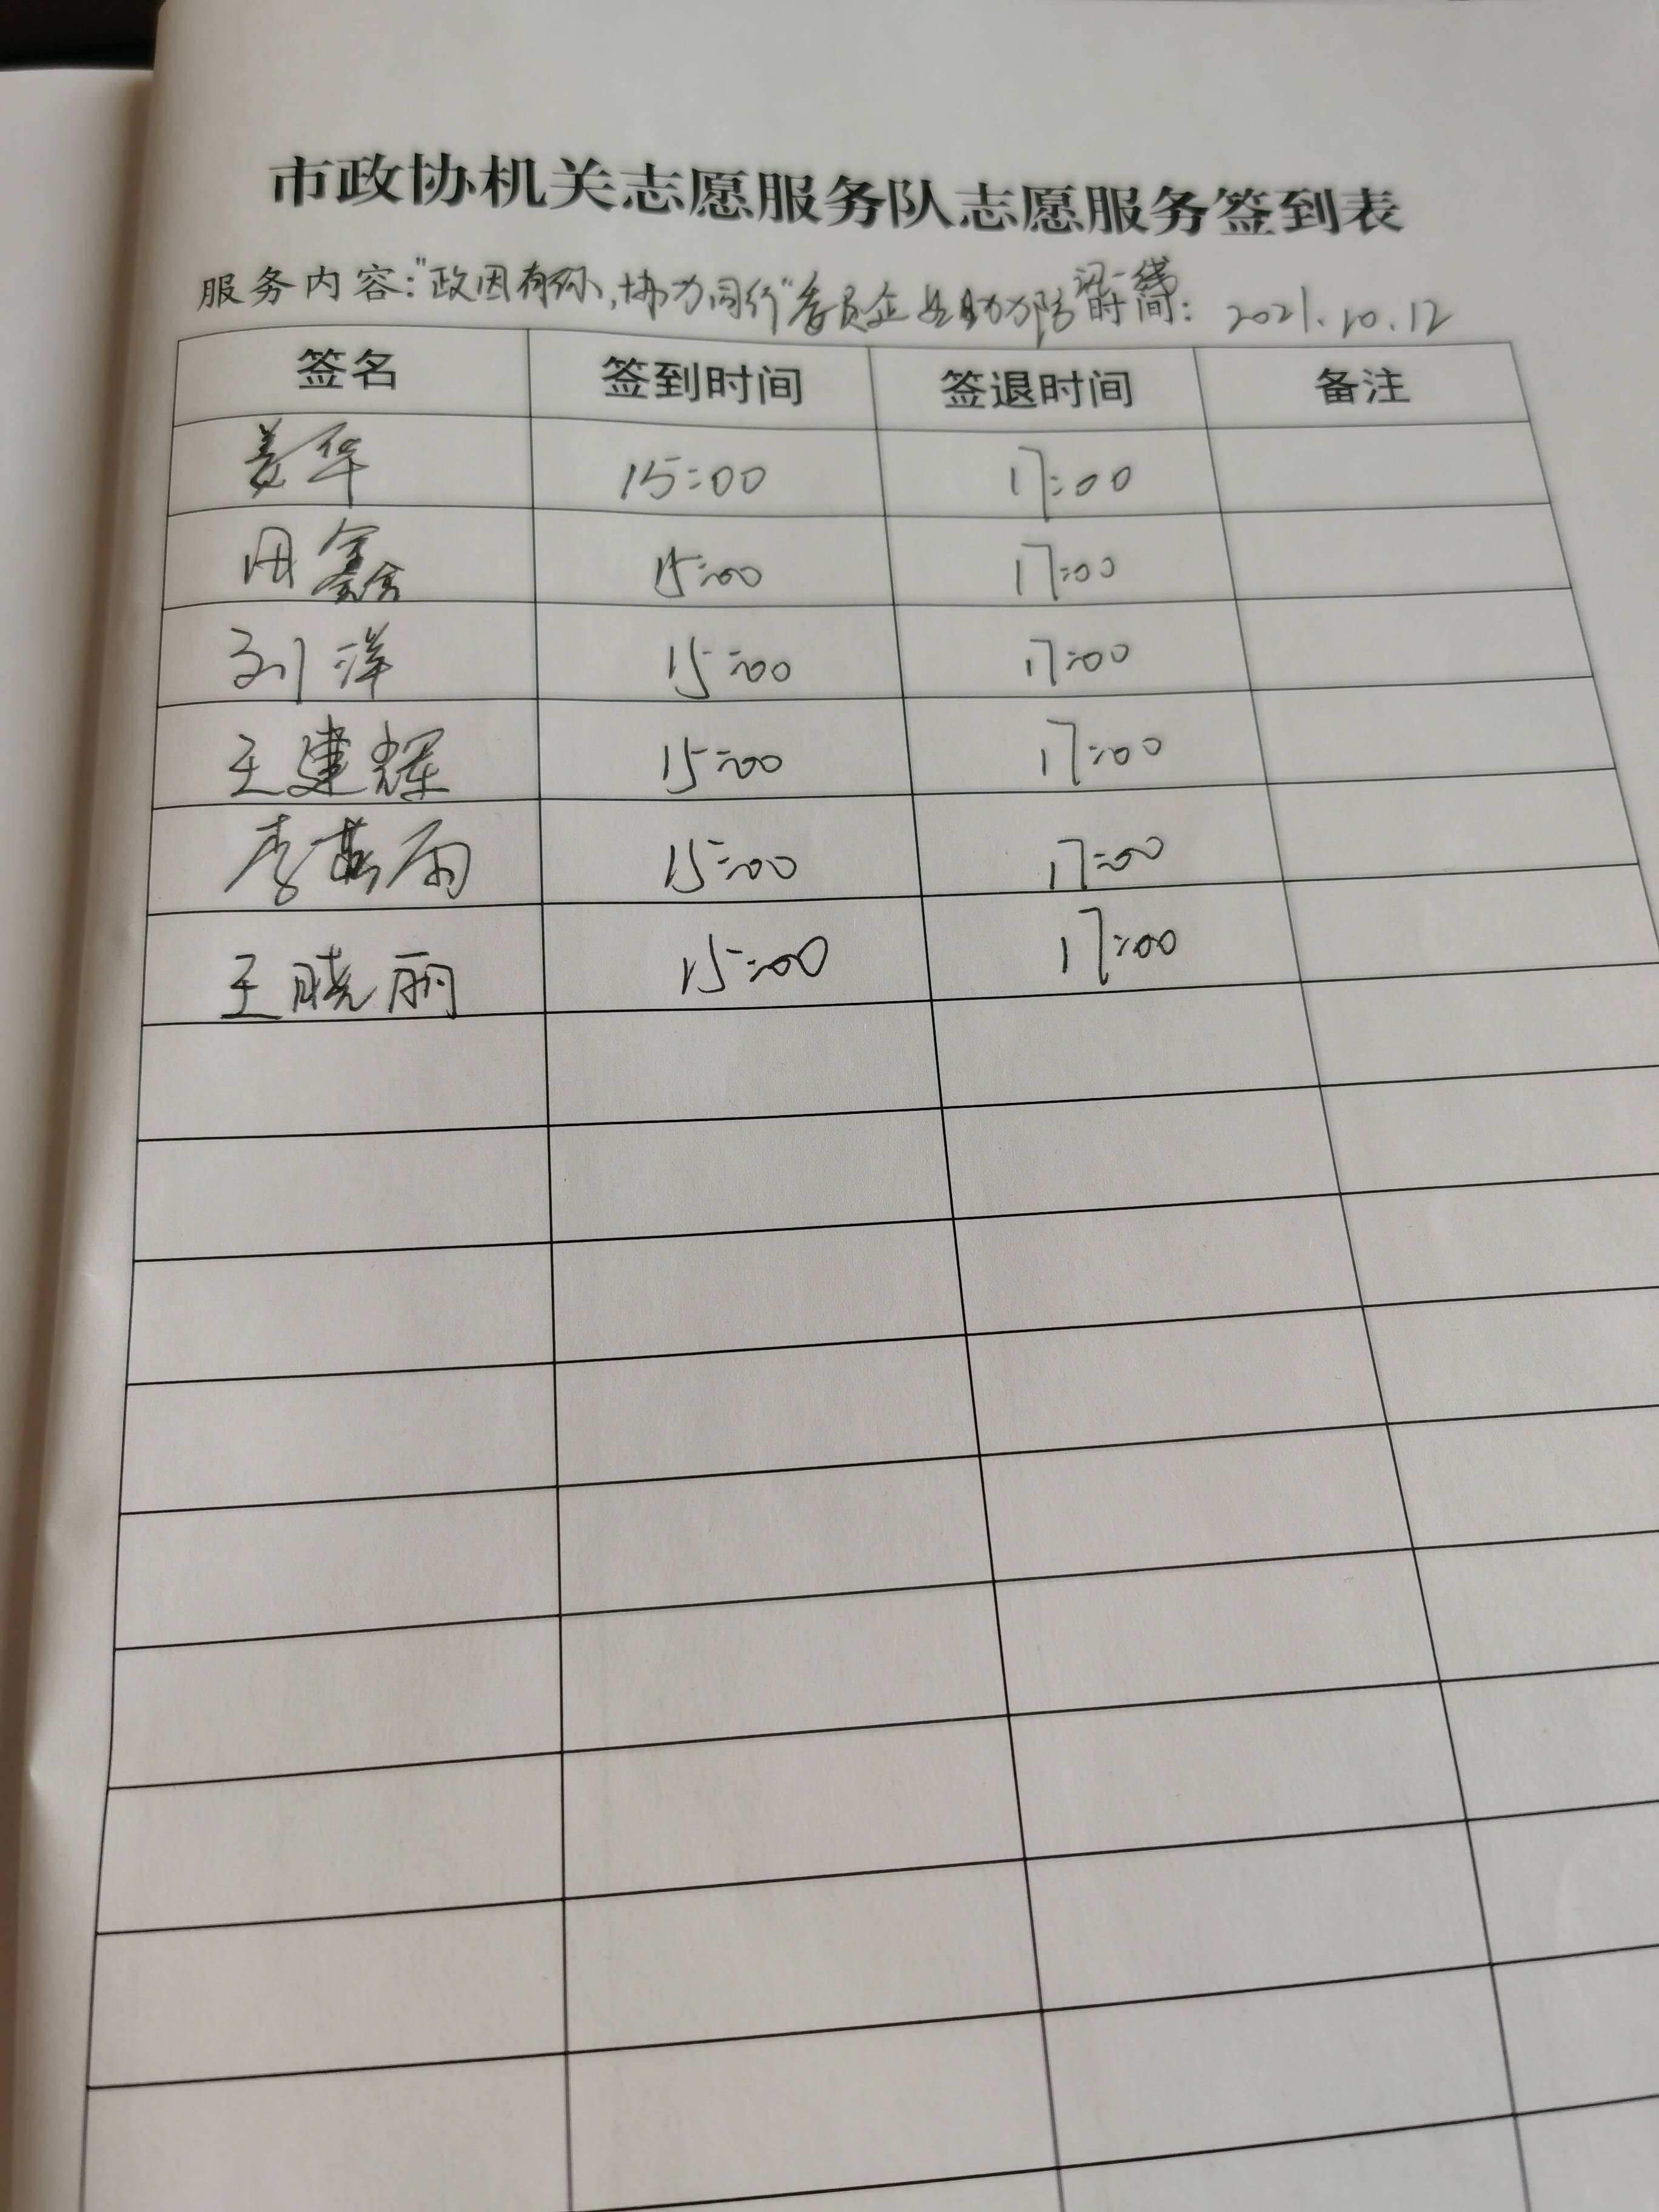 市政协机关志愿服务队志愿服务签到表
服务内容:"政因有你,协力同行"委员企业助力防汛一线 时间: 2021.10.12
签名 签到时间 签退时间 备注
姜华 15:00 17:00
田鑫 15:00 17:00
刘洋 15:00 17:00
王建辉 15:00 17:00
李燕雨 15:00 17:00
王晓丽 15:00 17:00